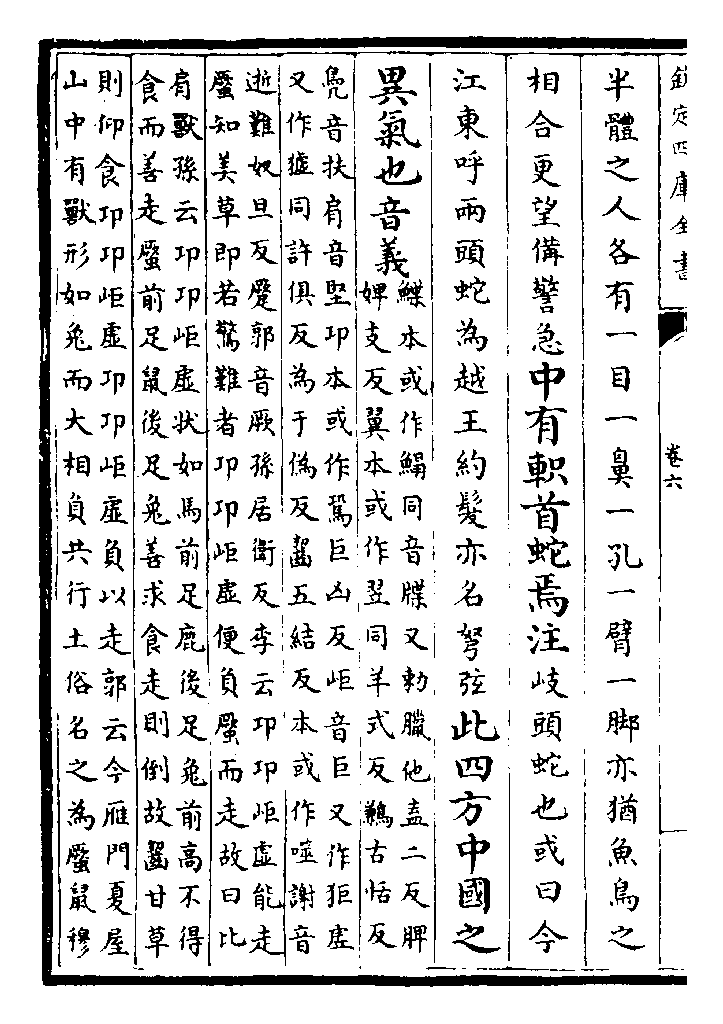 欽定四庫全書
卷六
半體之人各有一目一鼻一孔一臂一脚亦猶魚鳥之
相合更望備警急中有軹首蛇焉注岐頭蛇也或曰今
江東呼兩頭蛇為越王約髮亦名弩弦此四方中國之
異氣也音義
鰈本或作鰨同音牒又勑臘他盍二反脾
婢支反翼本或作翌同羊式反鶼古恬反
鳧音扶肩音堅邛本或作蛩巨凶反岠音巨又作狟虚
又作㹤同許俱反為于偽反齧五結反本或作噬謝音
逝難奴旦反蹷郭音厥孫居衛反李云邛邛岠虚能走
蟨知美草即若驚難者邛邛岠虚便負蟨而走故曰比
肩獸孫云邛邛岠虚狀如馬前足鹿後足兔前高不得
食而善走蟨前足鼠後足兔善求食走則倒故齧甘草
則仰食邛邛岠虚邛邛岠虚負以走郭云今雁門夏屋
山中有獸形如兔而大相負共行土俗名之為蟨鼠穆